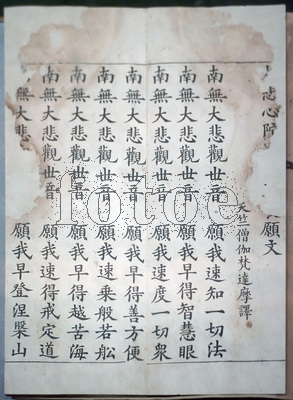 悲心陀願文
天竺僧伽梵達摩譯
南無大悲觀世音 願我速知一切法
南無大悲觀世音 願我早得智慧眼
南無大悲觀世音 願我速度一切衆
南無大悲觀世音 願我早得善方便
南無大悲觀世音 願我速乘般若船
南無大悲觀世音 願我早得越苦海
南無大悲觀世音 願我速得戒定道
無大悲 願我早登涅槃山
fotoe